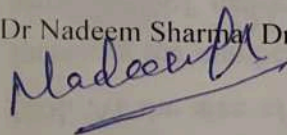 Dr Nadeem Sharma Dr
Nadeem